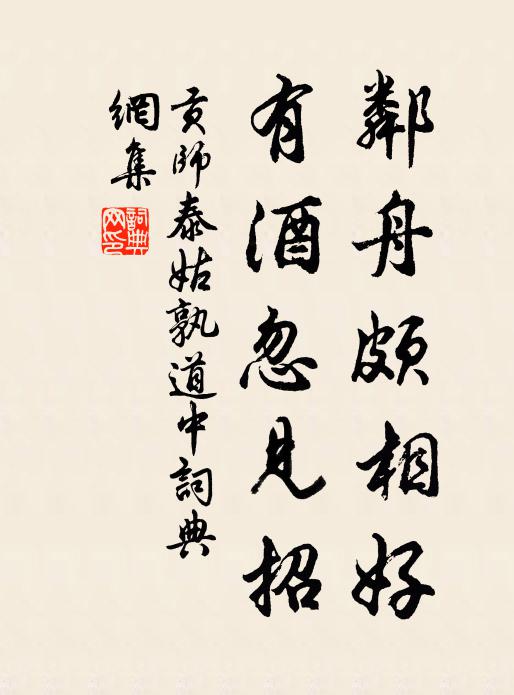 鄰舟頗相好
有酒忽見招
貢師泰姑孰道中詞典
網集
詞典
网印